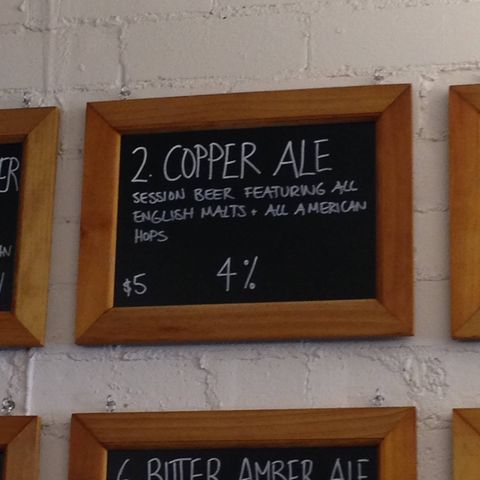 2. COPPER ALE
SESSION BEER FEATURING ALL
ENGLISH MALTS + ALL AMERICAN
HOPS
$5 4%
6. BITTER AMBER ALE